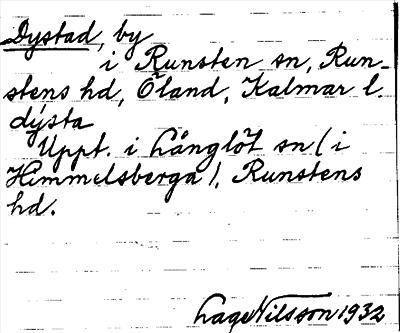 Dystad, by
i Runsten sn, Run-
stens hd, Öland, Kalmar l.
dýsta
Uppt. i Långlöt sn (i
Himmelsberga), Runstens
hd.
Lage Nilsson 1932